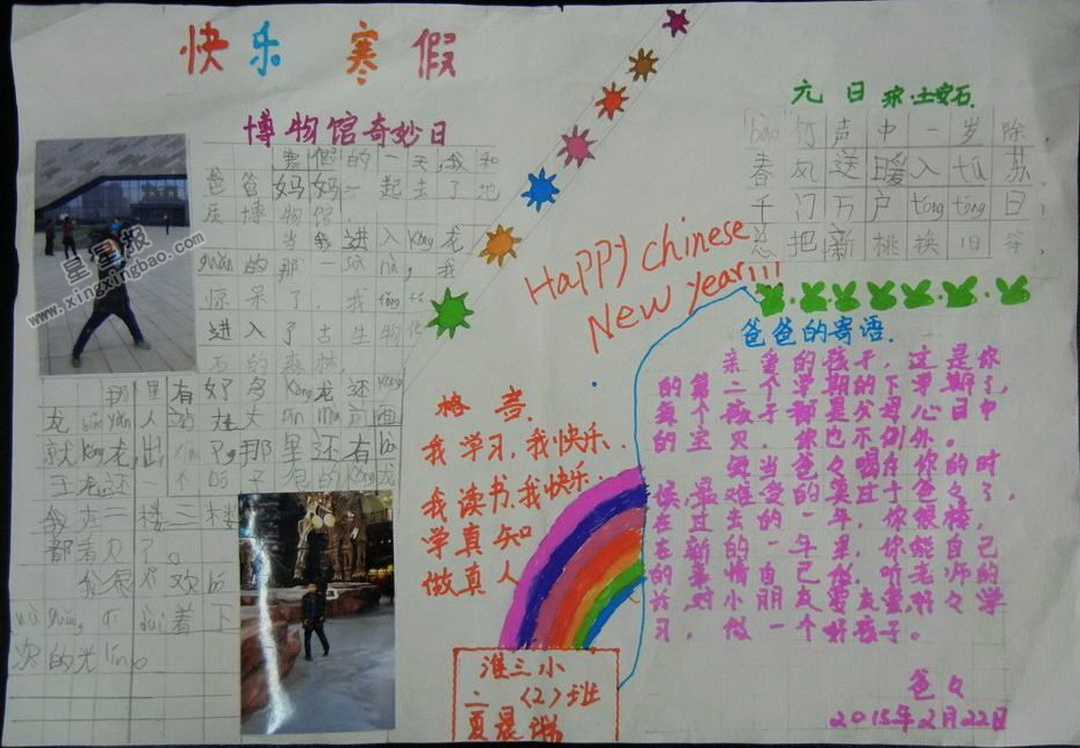 快乐 寒假
博物馆奇妙日
寒假的一天,我和
爸爸妈妈一起去了地
质博物馆.
当我进入kǒng龙
guǎn的那一 nà,我
惊呆了,我
进入了古生物化
石的森林.
那里有好多kǒng龙还
龙
就kǒng龙,出 那里还有bà
王龙还
我在二楼三楼
都看见了。
我很喜欢bó
wù guǎn, 着下
次的光lín。
星星报
www.xingxingbao.com
HaPPY chinese
New year!!!
格言.
我学习,我快乐.
我读书,我快乐.
学真知
做真人
淮三小
二 〈2〉班
元日 宋.王安石.
bào竹声中一岁除,
春风送暖入tú苏.
千门万户tóng tóng日,
总把新桃换旧符.
爸爸的寄语.
亲爱的孩子,这是你
的第二个学期的下学期了,
每个孩子都是父母心目中
的宝贝,你也不例外。
每当爸々唱片你的时
候最难受的莫过于爸々了,
在过去的一年,你很棒,
在新的一年里,你能自己
的事情自己做,听老师的
话,对小朋友要友爱,好々学
习,做一个好孩子。
爸々
2015年2月22日